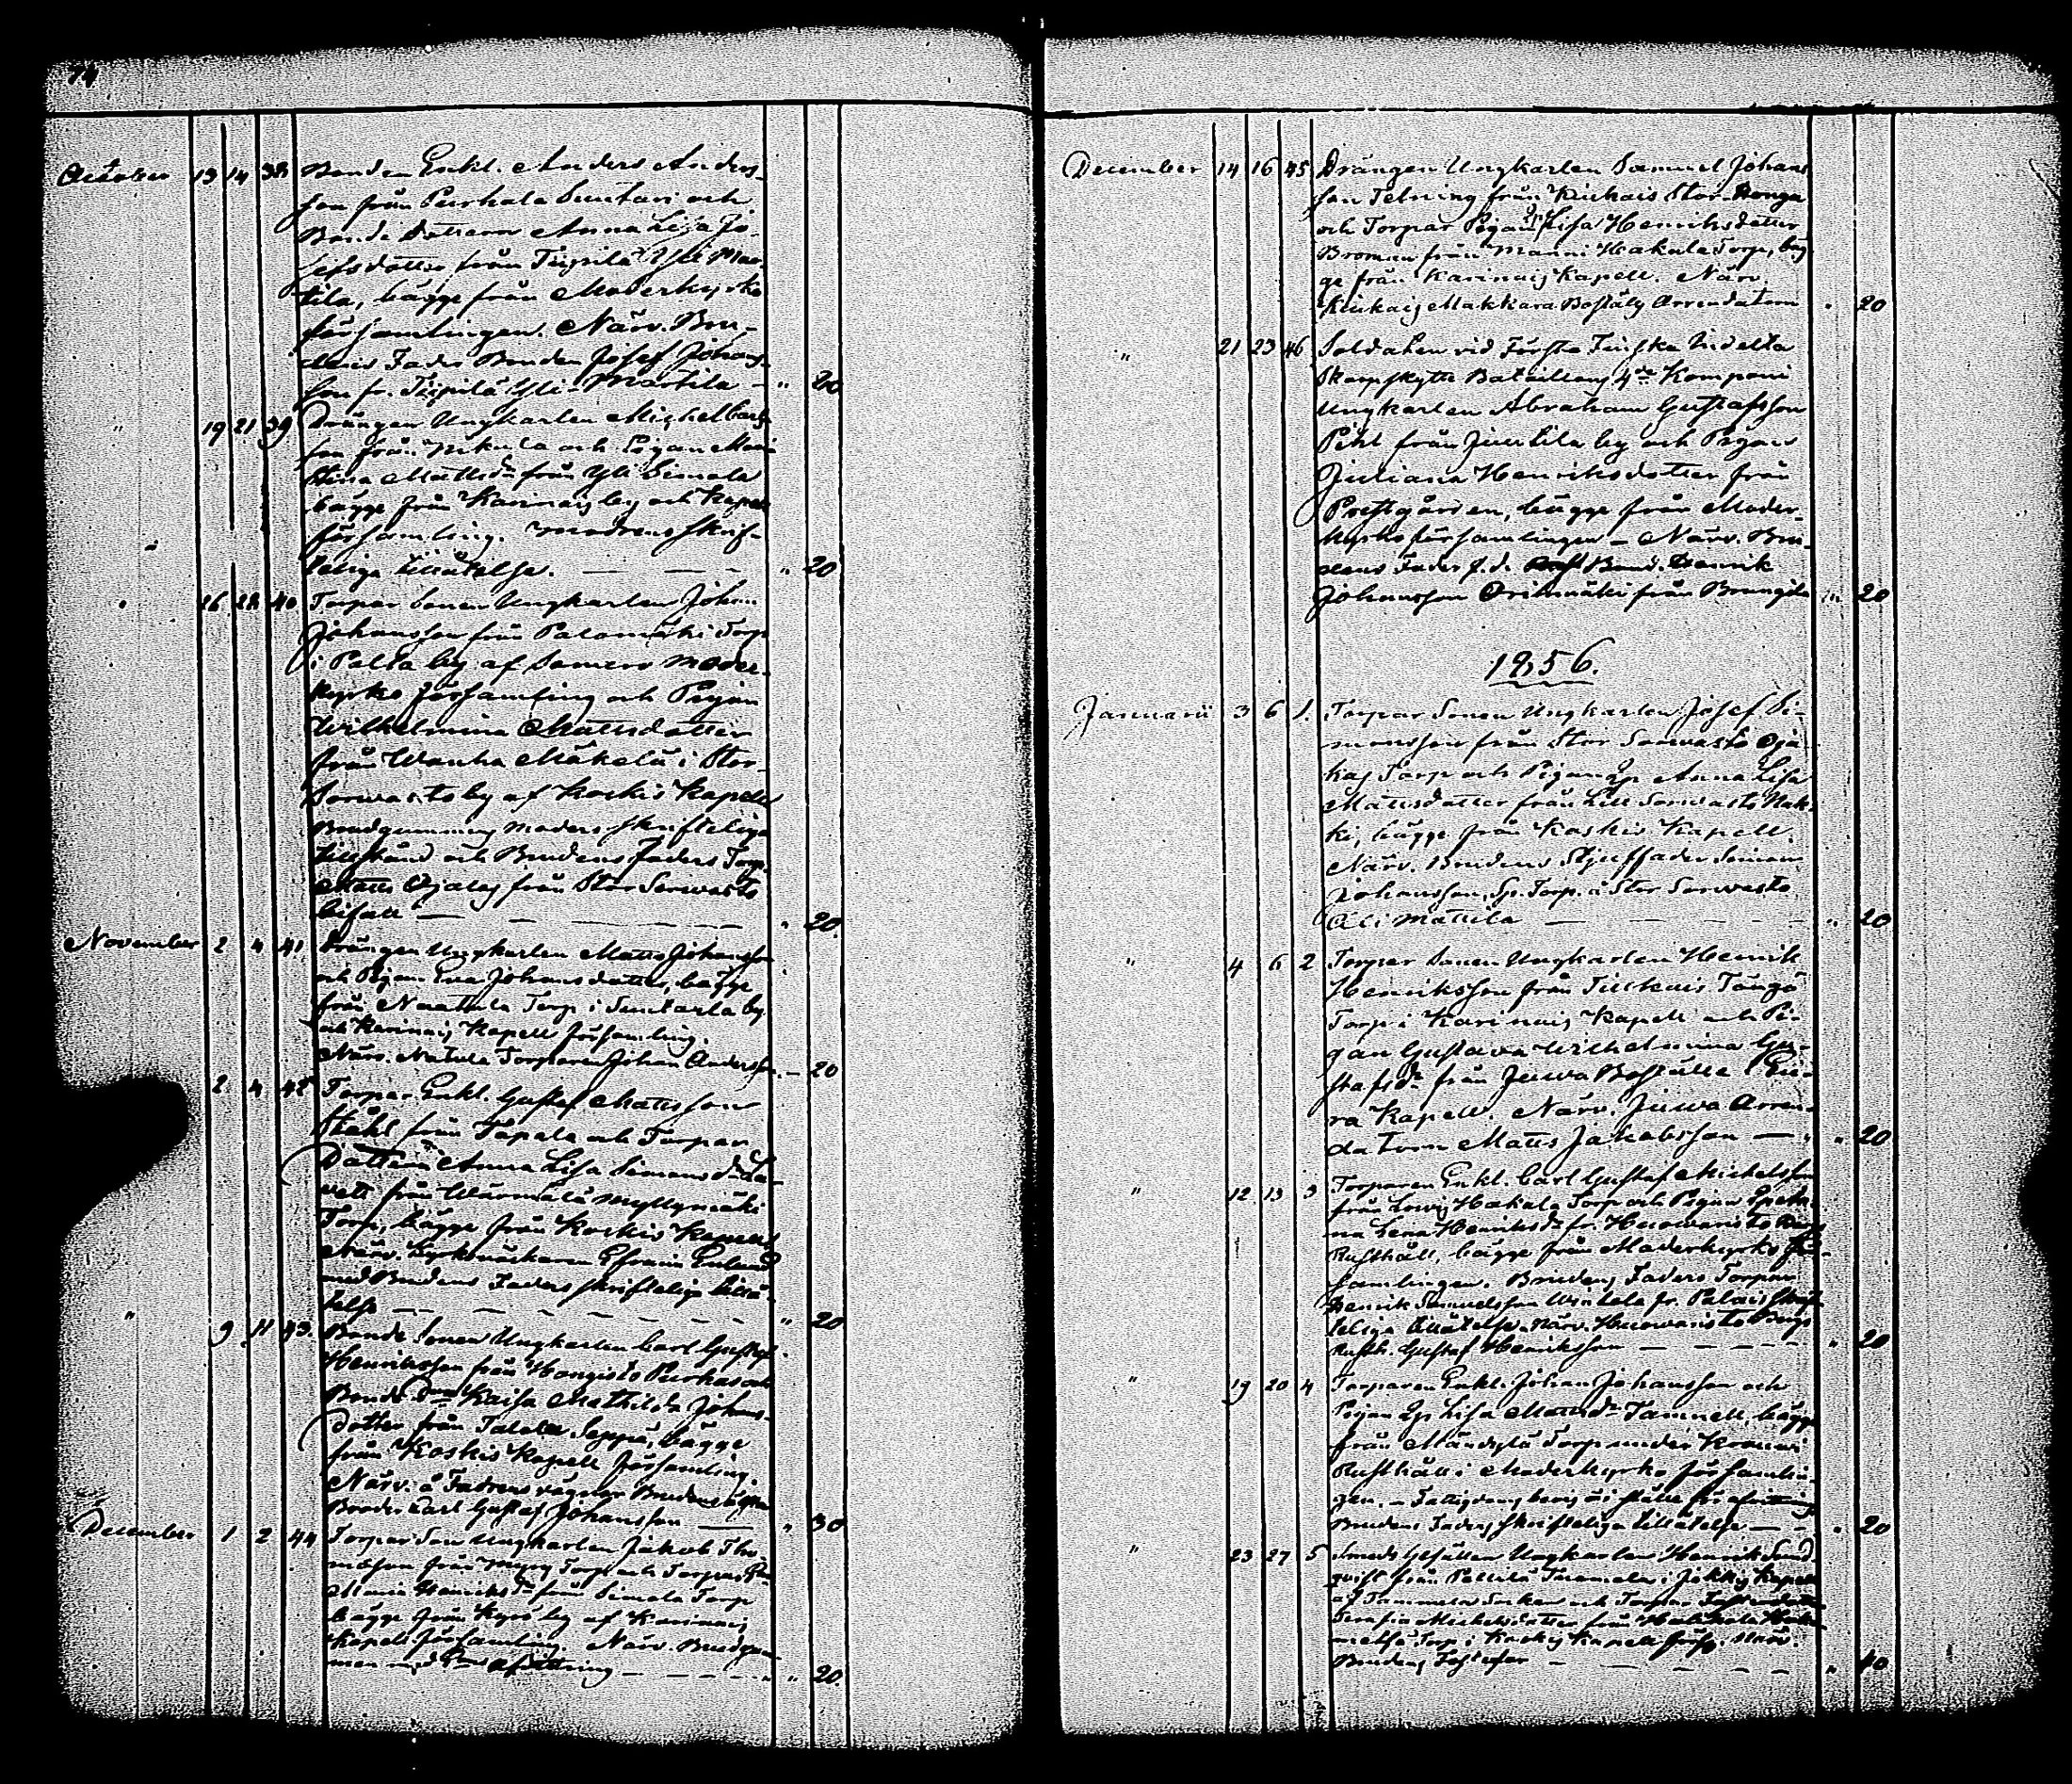 74
October 13 14 38 Bonden Enkl. Anders Anders-
son från Purhala Suutari och
Bonde dottern Anna Lisa Jo-
sefsdotter från Tiipilä Yli Mar-
tila, bägge från Moderkyrko
församlingen. Närv. Bru-
dens Fader Bonden Josef Johans-
son fr. Tiipilä Yli-Martila — " 20
" 19 21 39 Drängen Ungkarlen Michel Carls-
son från Nikula och Pigan Maria
Stina Mattsdr från Yli Simola
bägge från Karinais by och Kapell
församling. Modrens skrif-
teliga tillåtelse. — — — " 20
" 26 28 40 Torpar Sonen Ungkarlen Johan
Johansson från Palomäki Torp
i Palta by af Somero Moder-
kyrko församling och Pigan
Wilhelmina Mattsdotter
från Wanha Mäkelä i Stor
Sorwasto by af Koskis Kapell
Brudgummens Moders skrifteliga
tillstånd och Brudens Faders Torp.
Matts Ojalas från Stor Sorwasto
bifall — — — " 20.
November 2 4 41. Drängen Ungkarlen Matts Johansson
och Pigan Eva Johansdotter, bägge
från Naatula Torp i Suutarla by
och Karinais Kapell församling.
Närv. Natula Torparen Johan Andersson. — 20
2 4 42 Torpar Enkl. Gustaf Mattsson
Ståhl från Tapala och Torpar
Dottern Anna Lisa Simonsdr
från Wärmälä Myllymäki
Torp, bägge från Koskis Kapell
Närv. Efraim Enlund
med Brudens Faders skrifteliga tillå-
telse — — — — " 20
" 9 11 43. Bonde Sonen Ungkarlen Carl Gustaf
Henriksson från Hongisto Purhas och
Bonde Dottern Kaisa Mathilda Johans-
dotter från Talola Seppä, bägge
från Koskis Kapell församling.
Närv. å Fadrens vägnar Brudens
Broder Carl Gustaf Johansson — " 30
December 1 2 44 Torpar Son Ungkarlen Jakob Tho-
masson från Myry Torp och Torpar
Maria Henriksdr från Simola Torp
bägge från Kyrö by af Karinais
Kapell församling. Närv. Brudgum-
men med afvittring — — — " 20.
December 14 16 45 Drängen Ungkarlen Samuel Johans-
son Telning från Kiikais Stor-Honga
och Torpar Pigan Lisa Henriksdotter
Broman från Manni Hakala Torp, bäg-
ge från Karinais Kapell. Närv.
Kiikais Makkara Boställs Arrendatorn " 20
" 21 23 46 Soldaten vid Första Finska Indelta
Skarpskytte Bataillons 4de Kompani
Ungkarlen Abraham Gustafsson
Pihl från Juntila by och Pigan
Juliana Henriksdotter från
Prestgården, bägge från Moder-
kyrkoförsamlingen — Närv. Bru-
dens Fader f.d. Bond. Henrik
Johansson från " 20
1856.
Januarii 3 6 1. Torpar Sonen Ungkarlen Josef Si-
monsson från Stor Sorwasto Oja-
kas Torp och Pigan Anna Lisa
Mattsdotter från Lill Sorwasto
bägge från Koskis Kapell.
Närv. Brudens Stjuffader Simon
Johansson, Torp. å Stor Sorwasto
Ali Mattila — — — " 20
" 4 6 2 Torpar Sonen Ungkarlen Henrik
Henriksson från Tillkais
Torp i Karinais Kapell och Pi-
gan Gustava Wilhelmina Gu-
stafsdr från Juwa Boställe i Eu-
ra Kapell. Närv. Juwa Arren-
datorn Matts Jakobsson — " 20
" 12 13 3 Torparen Enkl. Carl Gustaf Michelsson
från Hakala Torp och Pigan
Lena Henriksdr fr. Huowaristo
Rusthåll, bägge från Moderkyrko för-
samlingen. Brudens Faders Torpar
Henrik Samuelsson fr. Palais skrif-
teliga tillåtelse. Närv. Huowaristo
Rusth. Gustaf Henriksson — — — " 20
" 19 20 4 Torparen Enkl. Johan Johansson och
Pigan Lisa Mattsdr Tamnell, bägge
från Torp under
Rusthåll i Moderkyrko församlin-
gen. — Fattigdoms bevis i stället för afvittring
Brudens Faders skrifteliga tillåtelse — — " 20
" 23 27 5 Smeds Gesällen Ungkarlen Henrik
från i Jokkis Kapell
af Tammela Socken och Torpar
Serafia Michelsdotter från
Torp i Koskis Kapell förs. Närv.
Brudens — — — " 40